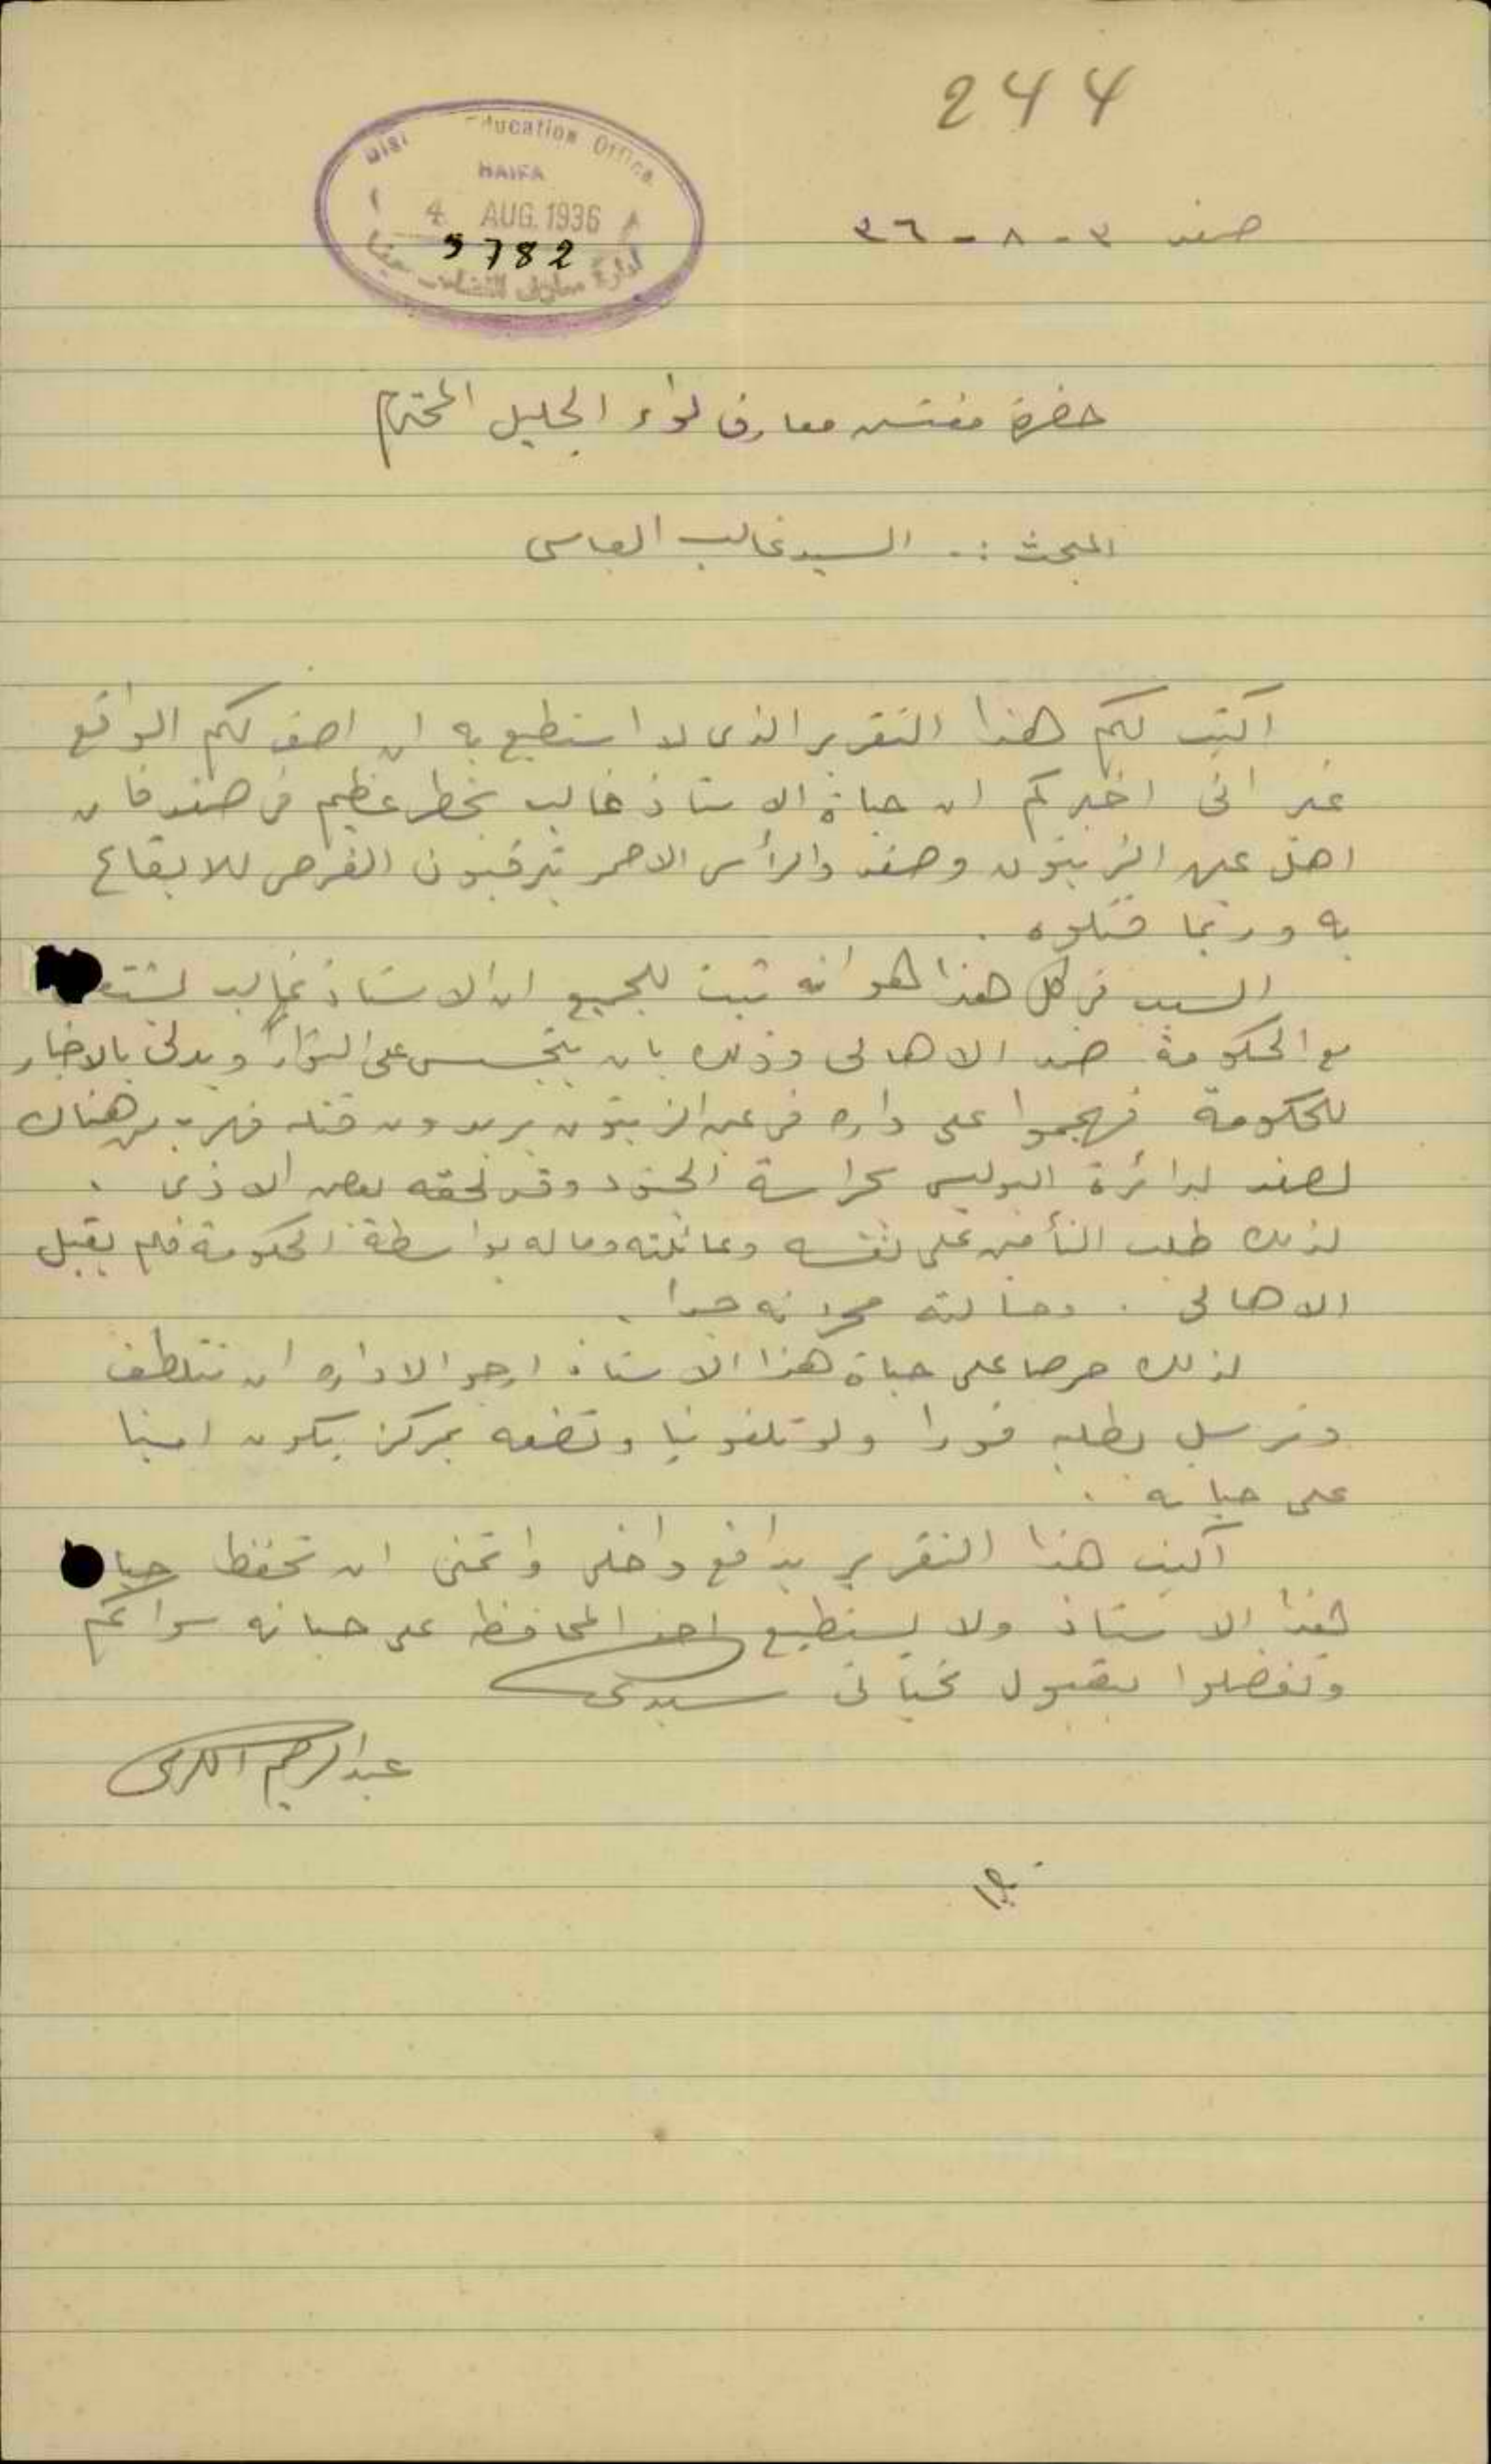 244
Education Office
HAIFA
4 AUG. 1936
5782
صفد ٣ - ٨ - ٣٦
حضرة مفتش معارف لواء الجليل المحترم
المبحث :. السيد غالب العباسي
اكتب لكم هذا التقرير الذى لا استطيع به ان اصف لكم الواقع
غير انى اخبركم ان حياة الاستاذ غالب بخطر عظيم فى صفد فان
اهل عين الزيتون وصفد والرأس الاحمر يترقبون الفرص للايقاع
به وربما قتلوه .
السبب فى كل هذا هو انه ثبت للجميع ان الاستاذ غالب
مع الحكومة ضد الاهالى وذلك بان يتجسس على الثوار ويدلى بالاخبار
للحكومة فهجموا على داره فى عين الزيتون يريدون قتله فهرب من هناك
لصفد لدائرة البوليس بحراسة الجنود وقد لحقه بعض الاذى .
لذلك طلب التأمين على نفسه وعائلته وماله بواسطة الحكومة فلم يقبل
الاهالى . وحالته محزنه جدا .
لذلك حرصا على حياة هذا الاستاذ ارجو الاداره ان تتلطف
وترسل بطلبه فورا ولو تلفونيا وتضعه بمركز يكون امينا
على حياته .
اكتب هذا التقرير بدافع داخلى واتمنى ان تحفظ
هذا الاستاذ ولا يستطيع احد المحافظة على حياته سواكم
وتفضلوا بقبول تحياتى سيدى
عبد الرحيم الكرمى